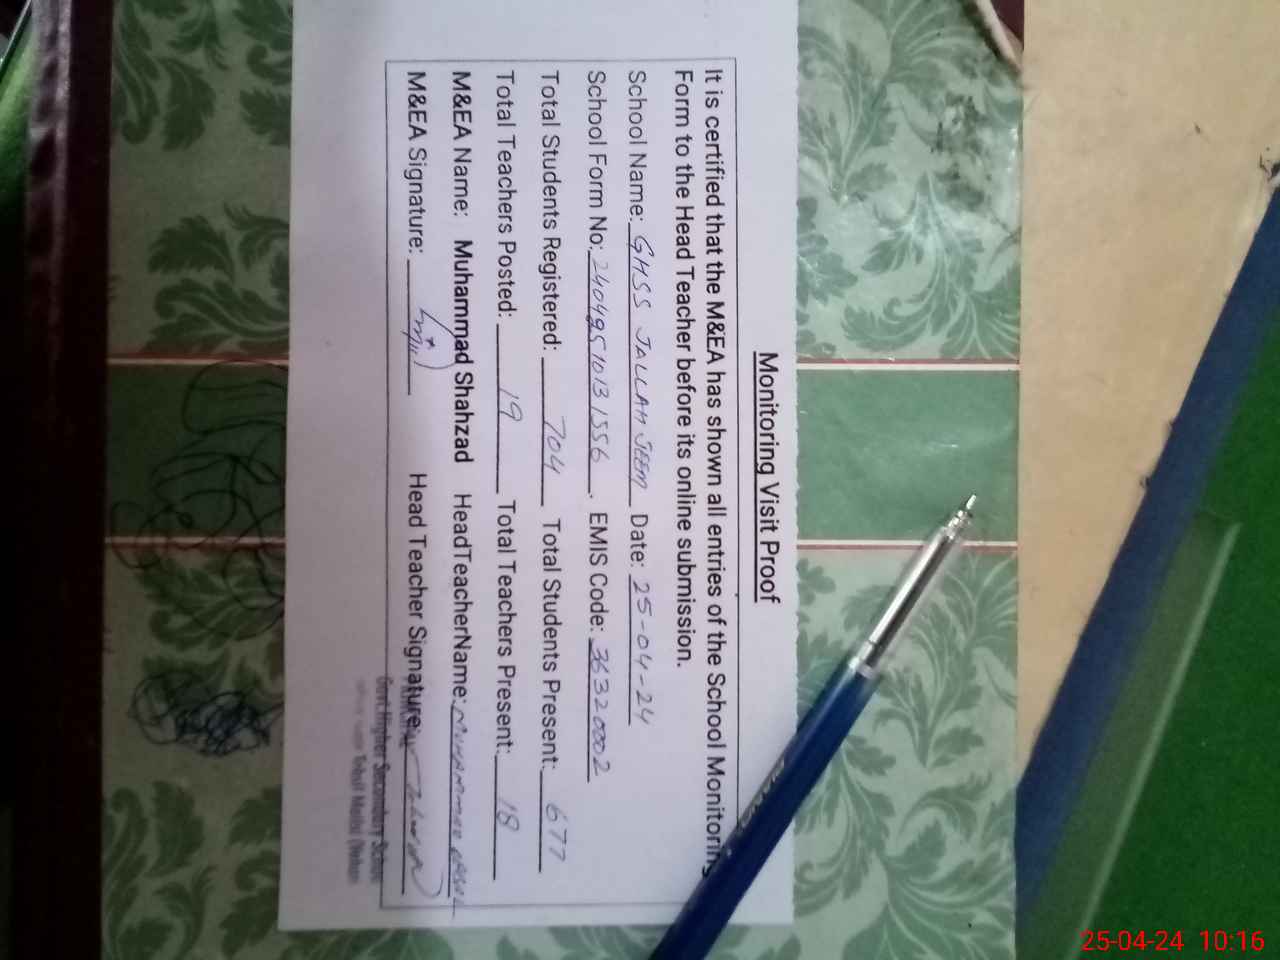 Monitoring Visit Proof
It is certified that the M&EA has shown all entries of the School Monitoring
Form to the Head Teacher before its online submission.
School Name: GHSS JALLAH JEEM Date: 25-04-24
School Form No: 2404951013 1556. EMIS Code: 36320002
Total Students Registered: 704 Total Students Present: 677
Total Teachers Posted: 19 Total Teachers Present: 18
M&EA Name: Muhammad Shahzad HeadTeacherName:
M&EA Signature: Head Teacher Signature:
Govt. Higher Secondary School
Tehsil Mailsi (Vehari
25-04-24 10:16